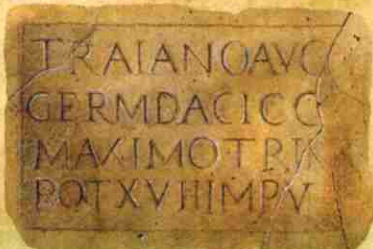 TRAIANOAVG
GERMDACICO
MAXIMOTRIB
POTXVIIIMPV